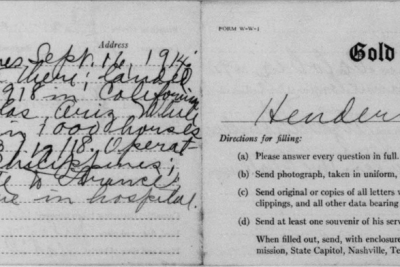 Address
Sept. 16, 1914;
there; landed
1918 in California
while
1000 horses
Operat
Philippines;
to France;
in hospital.
FORM W-W-1
Gold
Hender
Directions for filling:
(a) Please answer every question in full.
(b) Send photograph, taken in uniform,
(c) Send original or copies of all letters
clippings, and all other data bearing
(d) Send at least one souvenir of his serv
When filled out, send, with enclosure
mission, State Capitol, Nashville, Te